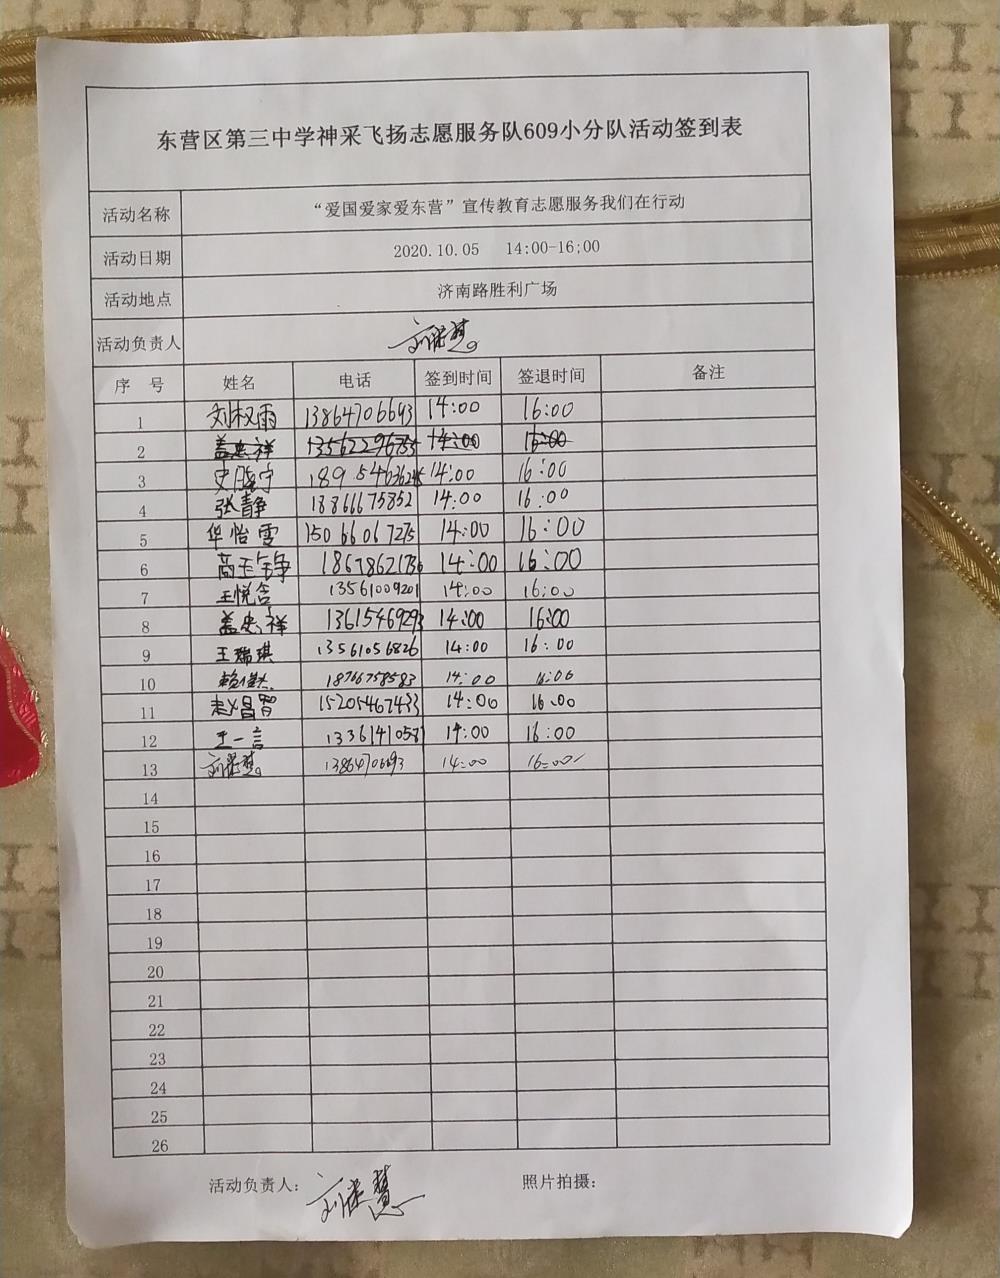 东营区第三中学神采飞扬志愿服务队609小分队活动签到表
活动名称 “爱国爱家爱东营”宣传教育志愿服务我们在行动
活动日期 2020.10.05 14:00-16;00
活动地点 济南路胜利广场
活动负责人
序 号 姓名 电话 签到时间 签退时间 备注
1 刘权雨 13864706693 14:00 16:00
2 盖忠祥 14:00 16:00
3 14:00 16:00
4 张静 18866675852 14:00 16:00
5 华怡雯 15066067275 14:00 16:00
6 高玉铮 18678621736 14:00 16:00
7 王悦含 13561009201 14:00 16:00
8 盖忠祥 13615469293 14:00 16:00
9 王瑞琪 13561056826 14:00 16:00
10 18766758583 14:00 16:00
11 赵昌智 15205467433 14:00 16:00
12 王一言 14:00 16:00
13 13864706693 14:00 16:00
14
15
16
17
18
19
20
21
22
23
24
25
26
活动负责人: 照片拍摄: